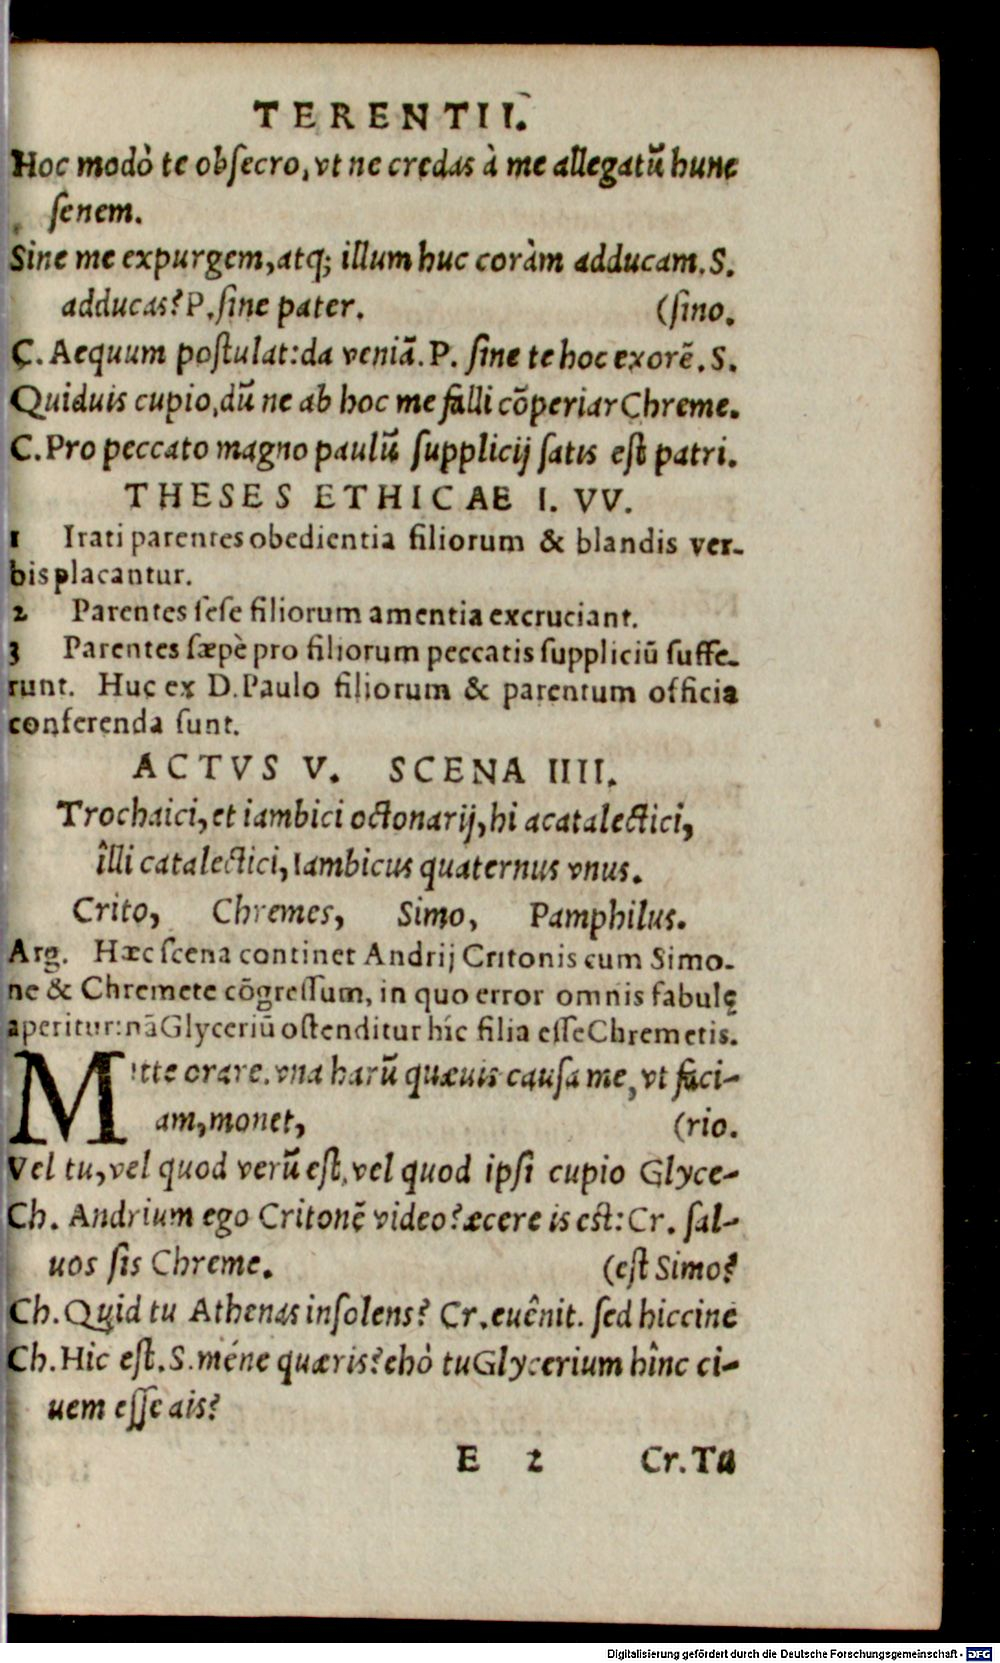 TERENTII.
Hoc modò te obsecro, vt ne credas à me allegatũ hunc
senem.
Sine me expurgem, atq; illum huc coràm adducam. S.
adducas? P. sine pater. (sino.
C. Aequum postulat: da veniã. P. sine te hoc exorẽ. S.
Quiduis cupio, dũ ne ab hoc me falli cõperiar Chreme.
C. Pro peccato magno paulũ supplicij satis est patri.
THESES ETHICAE I. VV.
1 Irati parentes obedientia filiorum & blandis ver-
bis placantur.
2 Parentes sese filiorum amentia excruciant.
3 Parentes sæpè pro filiorum peccatis suppliciũ suffe-
runt. Huc ex D. Paulo filiorum & parentum officia
conferenda sunt.
ACTVS V. SCENA IIII.
Trochaici, et iambici octonarij, hi acatalectici,
îlli catalectici, Iambicus quaternus vnus.
Crito, Chremes, Simo, Pamphilus.
Arg. Hæc scena continet Andrij Critonis cum Simo-
ne & Chremete cõgressum, in quo error omnis fabulę
aperitur: nã Glyceriũ ostenditur hîc filia esse Chremetis.
Mitte orare. vna harũ quæuis causa me, vt faci-
am, monet, (rio.
Vel tu, vel quod verũ est, vel quod ipsi cupio Glyce-
Ch. Andrium ego Critonẽ video? æcere is est: Cr. sal-
uos sis Chreme. (est Simo?
Ch. Quid tu Athenas insolens? Cr. euênit. sed hiccine
Ch. Hic est. S. méne quæris? ehò tu Glycerium hînc ci-
uem esse ais?
E 2 Cr. Tu
Digitalisierung gefördert durch die Deutsche Forschungsgemeinschaft - DFG